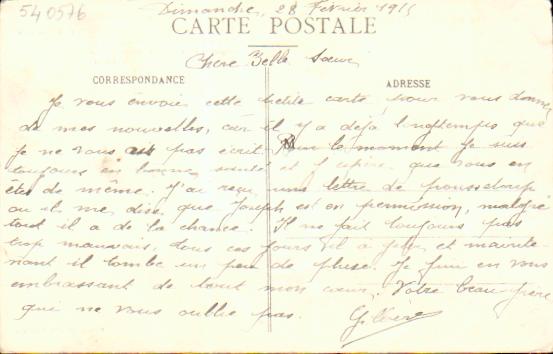 540576
Dimanche, 28 Février 1915
CARTE POSTALE
Chere Belle Sœur
CORRESPONDANCE
ADRESSE
Je vous envoie cette petite carte, pour vous donner
de mes nouvelles, car il y a déjà longtemps que
je ne vous ai pas écrit. Pour le moment je suis
toujours en bonne santé et j'espère que vous en
êtes de même. J'ai reçu une lettre de
ou il me dise que Joseph est en permission, malgré
tout il a de la chance. Il ne fait toujours pas
trop mauvais, tous ces jours il a gelé et mainte-
nant il tombe un peu de pluie. Je finis en vous
embrassant de tout mon cœur. Votre beau-frère
que ne vous oublie pas.